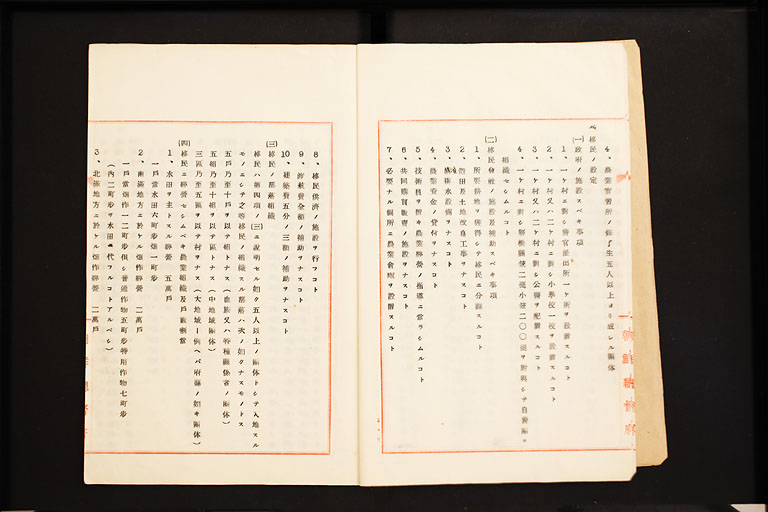 4、農業實習所ノ修了生五人以上ヨリ成レル團体
五、移民ノ設定
(一)政府ノ施設スベキ事項
1、一ヶ村ニ對シ警官派出所一ヶ所ヲ設置スルコト
2、一ヶ村又ハ二ヶ村ニ對シ小學校一校ヲ設置スルコト
3、一ヶ村又ハ二ヶ村ニ對シ公醫ヲ配置スルコト
4、一ヶ村ニ對シ輕機關銃二挺小銃二〇〇挺ヲ附與シテ自警團ヲ
組織セシムルコト
(二)移民會社ノ施設及補助スベキ事項
1、所要耕地ヲ獲得シテ移民ニ分讓スルコト
2、開田及土地改良工事ヲナスコト
3、灌漑排水設備ヲナスコト
4、農業資金ノ貸付ヲナスコト
5、技術員ヲ置キ農業經營ノ指導ニ當ラシムルコト
6、共同購買販賣ノ施設ヲナスコト
7、必要ナル個所ニ農業倉庫ヲ設置スルコト
8、移民供濟ノ施設ヲ行フコト
9、渡航費全額ノ補助ヲナスコト
10、建築費五分ノ三額ノ補助ヲナスコト
(三)移民ノ部落組織
移民ハ第四項ノ(三)ニ説明セル如ク五人以上ノ團体トシテ入地スル
モノニシテ之等移民ノ組織スル部落ハ次ノ如クナスモノトス
五戸乃至十戸ヲ以テ組トナス(血族又ハ特種關係者ノ團体)
五組乃至十組ヲ以テ區トナス(中地域團体)
三區乃至五區ヲ以テ村ヲナス(大地域ー例ヘバ府縣ノ如キ團体)
(四)移民ニ經營セシムベキ農業組織及戸數割當
1、水田ヲ主トスル經營 五萬戸
一戸當水田六町歩畑一町歩
2、南滿地方ニ於ケル畑作經營 二萬戸
一戸當畑作一二町歩但シ普通作物五町歩特用作物七町歩
(内二町歩ヲ水田ニ代フルコトアルベシ)
3、北滿地方ニ於ケル畑作經營 二萬戸